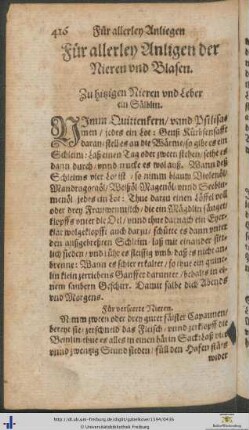 416 Für allerley Anliegen
Für allerley Anligen der
Nieren vnd Blasen.
Zu hitzigen Nieren vnd Leber
ein Sälblin.
NImm Quittenkern / vnnd Psilisa-
men / jedes ein Lot: Geuß Kürbsensafft
daran / stell es an die Wärme / so gibt es ein
Schleim: laß einen Tag oder zween stehen / seihe es
dann durch / vnnd trucke es wol auß. Wann deß
Schleims vier Lot ist / so nimm blauw Violenöl /
Mandragoraöl / Magenöl vnnd Seeblu-
menöl / jedes ein Lot: Thue darzu einen Löffel voll
oder drey Frauwenmilch / die ein Mägdlin säuget
klopffs vnter die Oel / vnnd
wolgeklopfft auch darzu / schütte es dann vnter
den außgebrehten Schleim / laß mit einander
lich sieden / vnd rühr es stettig vmb daß es nicht an-
brenne: Wann es schier erkaltet / so thue ein quint-
lin klein zerrieben Ganffer darunter / behalts in ei-
nem saubern Geschirr. Damit salbe dich Abends
vnd Morgens.
Für verserte Nieren.
Nimm zween oder drey guter faißter Capaunen /
bereyt sie / zerschneid das Fleisch / vnnd zerklopff die
Beynlin / thue es alles in einen Hafen
vnd zwentzig Stund sieden / füll den Hafen stäts
wider
http://dl.ub.uni-freiburg.de/diglit/gabelkover1594/0436
© Universitätsbibliothek Freiburg